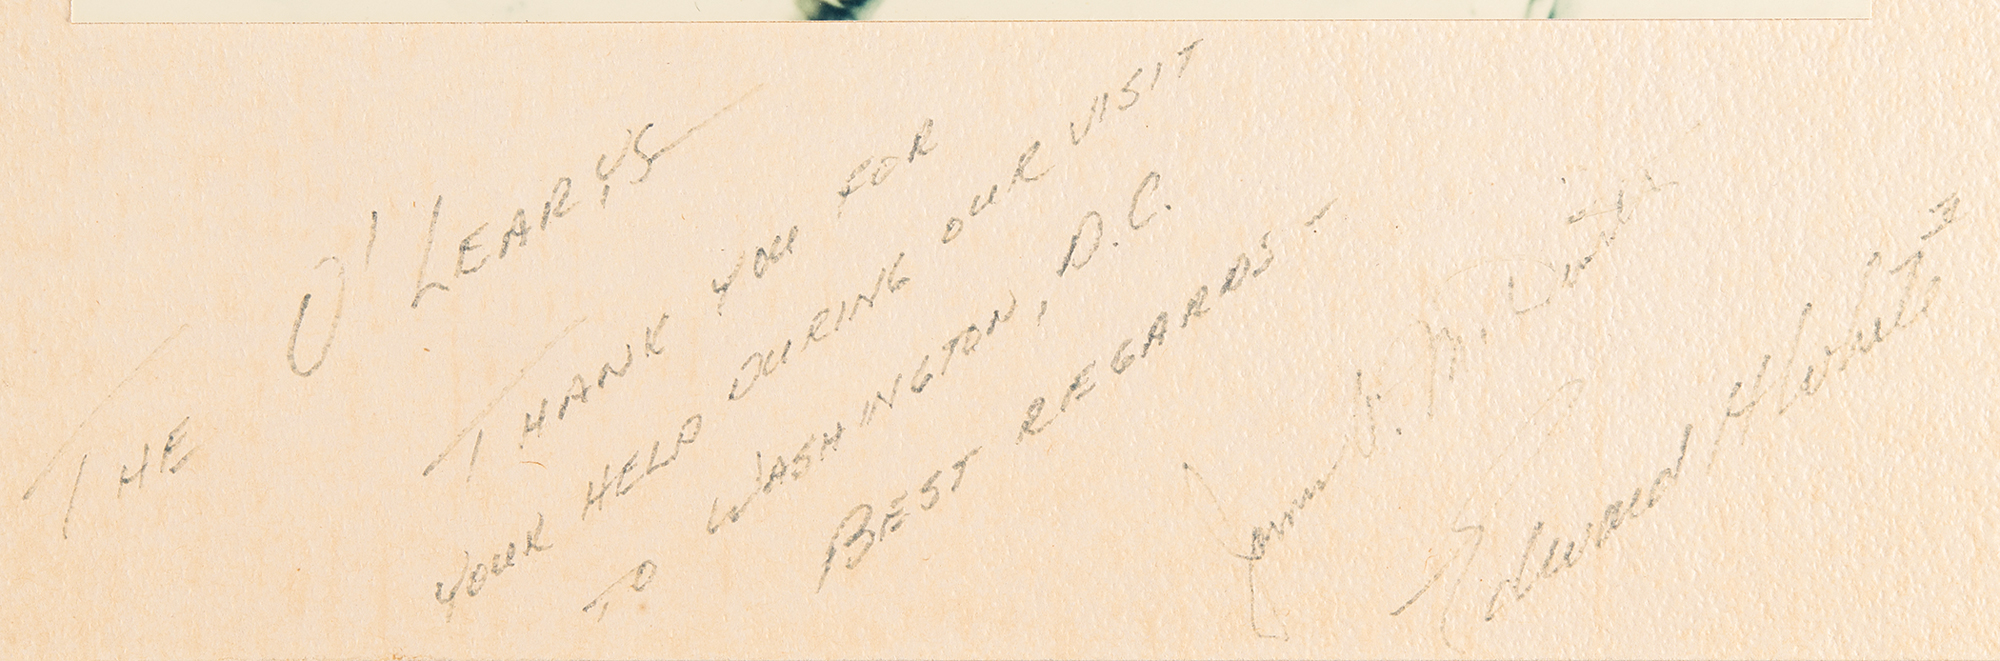 THE O'LEARYS
THANK YOU FOR
YOUR HELP DURING OUR VISIT
TO WASHINGTON, D.C.
BEST REGARDS -
James A. McDivitt
Edward H White II